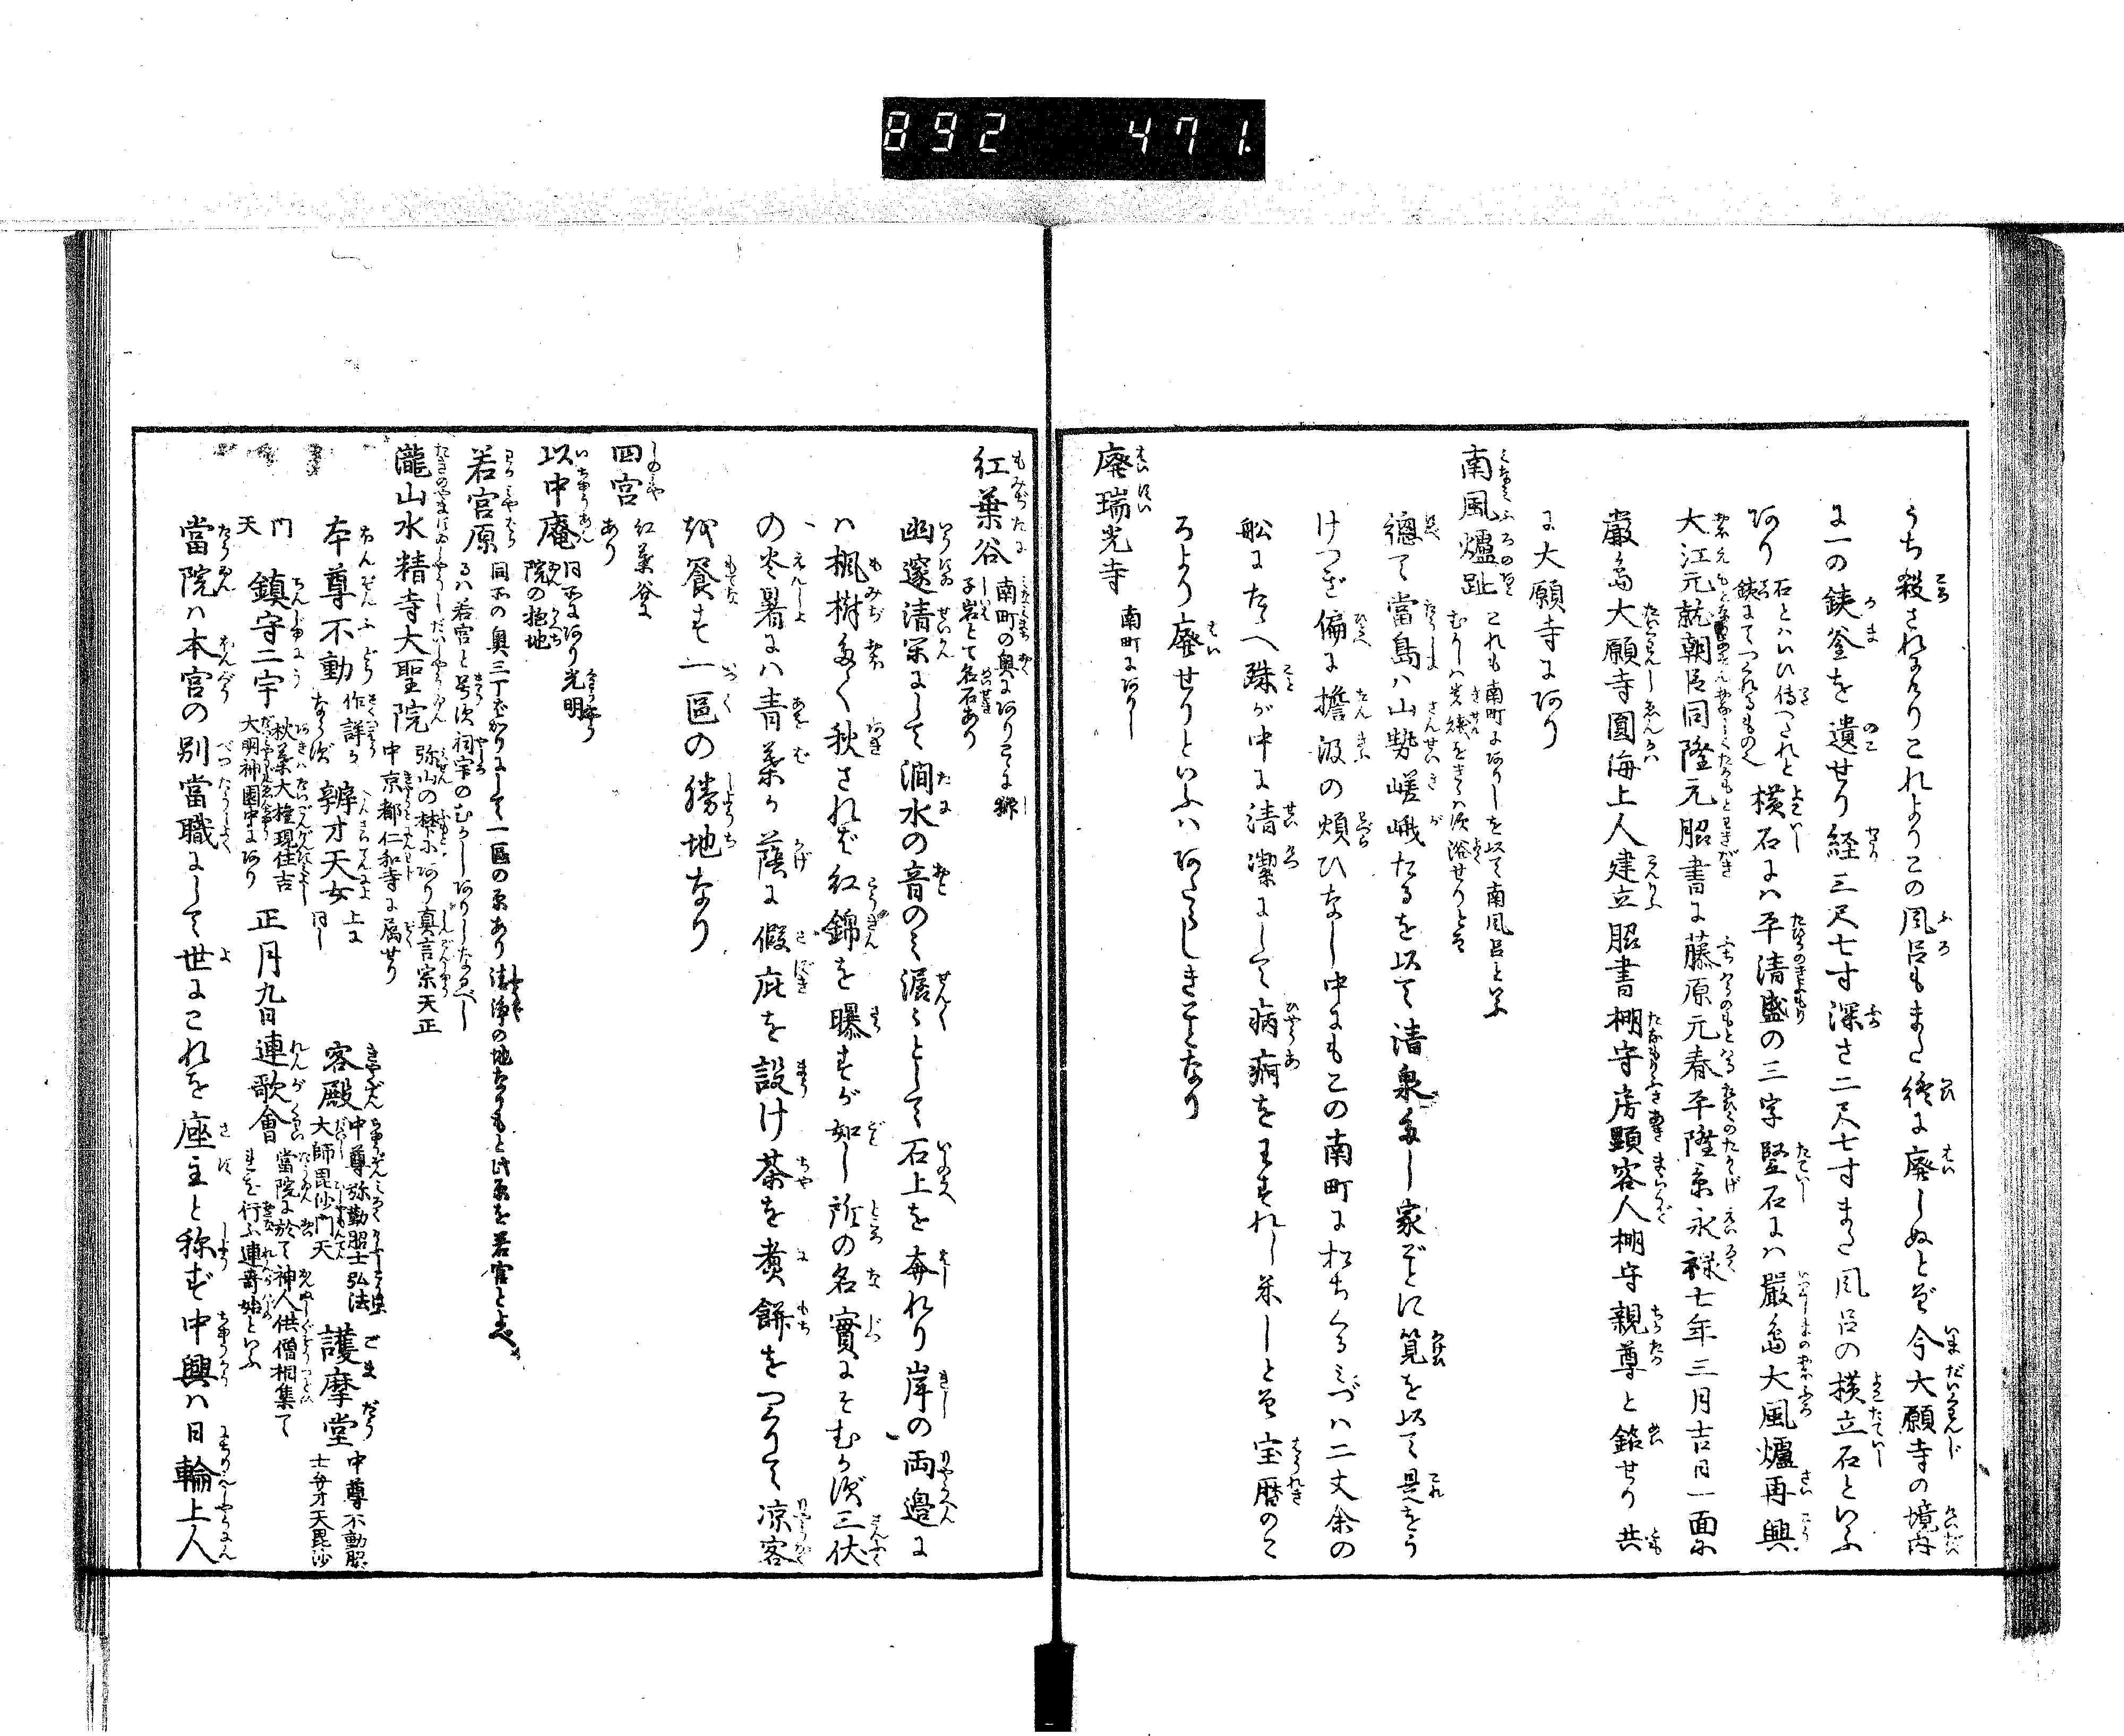 892 471.
うち殺されけりこれよりこの風呂もまた終に廃しぬとぞ今大願寺の境内
に一の鉄釜を遺せり経三尺七寸深さ二尺七寸また風呂の横立石といふ
あり
石とハいひ傳つれと
鉄にてつくれるもの也
横石にハ平清盛の三字竪石にハ嚴島大風爐再興
大江元就朝臣同隆元昭書に藤原元春平隆景永禄七年三月吉日一面に
嚴島大願寺圓海上人建立昭書棚守房顕客人棚守親尊と銘せり共
に大願寺にあり
南風爐趾
これも南町にありしを以て南風呂といふ
むかしハ貴賤をきらハす浴せりとそ
總て當島ハ山勢嵯峨たるを以て清泉多し家ごとに筧を以て是をう
けつぎ偏に擔汲の煩ひなし中にもこの南町におちくるみづハ二丈余の
舩にたくへ殊が中に清潔にして病痾を
宝暦のこ
ろより廃せりといふハあたらしきことなり
廃瑞光寺
南町にありし
紅葉谷
南町の奥にありこゝに獅
子岩とて名石あり
幽邃清栄にして澗水の音のミ潺々として石上を奔れり岸の両邉に
ハ楓樹多く秋されば紅錦を曝すが如し所の名實にそむかず三伏
の炎暑にハ青葉の蔭に假庇を設け茶を煮餅をつくりて凉客
を饗す一區の勝地なり
四宮
紅葉谷に
あり
以中庵
同所にあり光明
院の抱地
若宮原
同所の奥三丁ばかりにして一區の原あり清浄の地なりもと此原を若宮といへ
るハ若宮と号す祠宇のむかしありしなるべし
瀧山水精寺大聖院
弥山の麓にあり真言宗天正
中京都仁和寺に属せり
本尊不動
作詳か
ならず
辨才天女
上に
同し
客殿
中尊弥勒昭士弘法
大師毘沙門天
護摩堂
中尊不動昭
士弁才天毘沙
門
天
鎮守二宇
秋葉大権現住吉
大明神園中にあり
正月九日連歌會
當院に於て神人供僧相集て
是を行ふ連哥始といふ
當院ハ本宮の別當職にして世にこれを座主と称ず中興ハ日輪上人